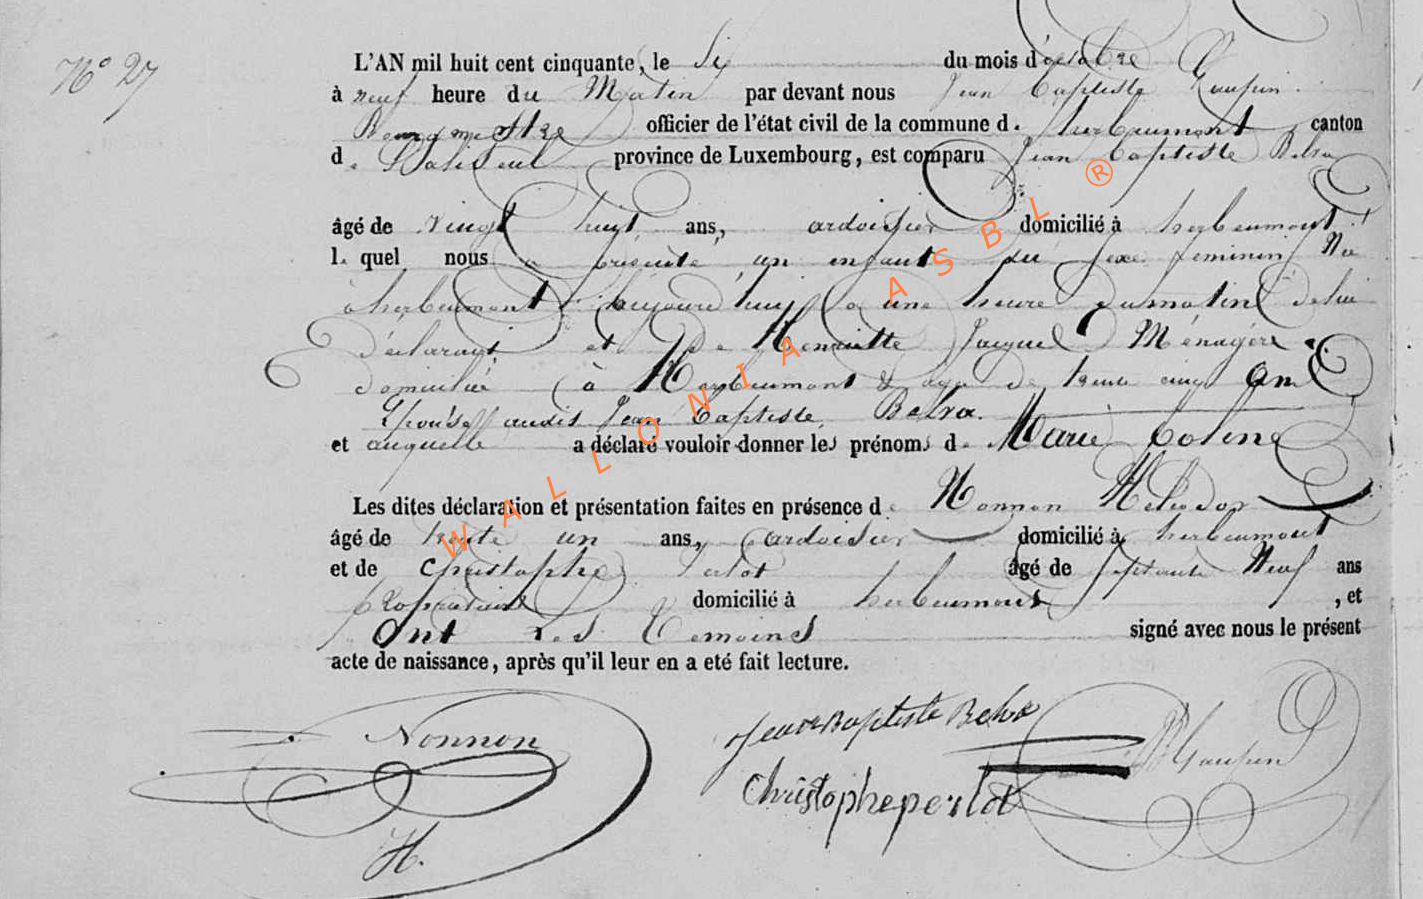 N° 27
L'AN mil huit cent cinquante, le Six du mois d'octobre
à neuf heure du Matin par devant nous Jean Baptiste Gaupin
Bourgmestre officier de l'état civil de la commune d. herbeumont, canton
d. Paliseul province de Luxembourg, est comparu Jean Baptiste Belva
âgé de vingt huit ans, ardoisier domicilié à herbeumont
l. quel nous a présenté un enfant du sexe feminin Né
à herbeumont aujourd'huy à une heure du matin de lui
déclarant et de Henriette Jacque Ménagère
domiciliée à Herbeumont & agée de trente cinq ans
Epouse audit Jean Baptiste Belva.
et auquelle a déclaré vouloir donner les prénoms d. Marie Coline
Les dites déclaration et présentation faites en présence de Nonnon Heliodor
âgé de trente un ans, ardoisier domicilié à herbeumont
et de Christophe Perlot âgé de septante Neuf ans
propriétaire domicilié à herbeumont, et
ont les Temoins signé avec nous le présent
acte de naissance, après qu'il leur en a eté fait lecture.
Nonnon
H.
Jean Baptiste Belva
Christophe perlot
Gaupin
WALLONIA ASBL ®